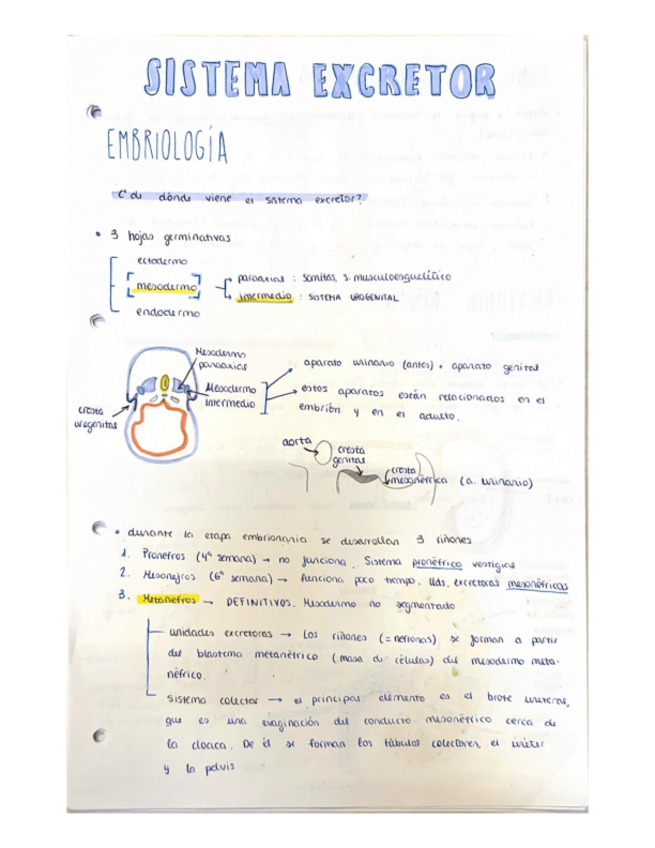 SISTEMA EXCRETOR
EMBRIOLOGÍA
¿de dónde viene el sistema excretor?
• 3 hojas germinativas
ectodermo
mesodermo
paraaxial : somitas, s. musculoesquelético
intermedio : SISTEMA UROGENITAL
endodermo
Mesodermo
paraaxial
Mesodermo
intermedio
cresta
urogenital
aparato urinario (antes) + aparato genital
estos aparatos están relacionados en el
embrión y en el adulto.
aorta
cresta
genital
cresta
mesonéfrica (a. urinario)
• durante la etapa embrionaria se desarrollan 3 riñones
1. Pronefros (4ª semana) → no funciona. Sistema pronéfrico vestigial
2. Mesonefros (6ª semana) → funciona poco tiempo. Uds. excretoras mesonéfricas
3. Metanefros → DEFINITIVOS. Mesodermo no segmentado
unidades excretoras → Los riñones (= nefronas) se forman a partir
del blastema metanéfrico (masa de células) del mesodermo meta-
néfrico.
Sistema colector → el principal elemento es el brote ureteral,
que es una evaginación del conducto mesonéfrico cerca de
la cloaca. De él se forman los túbulos colectores, el uréter
y la pelvis